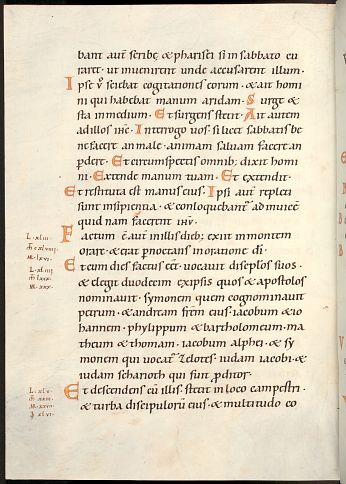 bant aut scribę & pharisei si in sabbato cu
raret · ut invenirent unde accusarent illum ·
Ipse v̊ sciebat cogitationes eorum · & ait homi
ni qui habebat manum aridam · Surge &
sta in medium · Et surgens stetit · Ait autem
ad illos ih̅c · Interrogo vos · si licet sabbatis be
ne facere an male · animam salvam facere an
p̱dere · Et circumspectis omnib; dixit homi
ni · Extende manum tuam · Et extendit ·
Et restituta est manus eius · Ipsi aut̅ repleti
sunt insipientia · & conloquebant̅ ad invicē
quid nam facerent ih̅v ·
L · xl·iii·
Factum ē aut̅ in illis dieb; exiit in montem
orare · & erat p̱noctans in oratione dī ·
L · xl·iiii·
Et cum dies factus eēt · vocavit discip̅los suos ·
& elegit duodecim ex ipsis quos & apostolos
nominavit · Symonem quem cognominavit
petrum · & andream fr̅em eius · iacobum & io
hannem · phylippum & bartholomeum · ma
theum & thomam · iacobum alphei · & sy
monem qui vocat̅ zelotes · iudam iacobi · &
iudam scharioth qui fuit p̱ditor ·
L · xl·v·
Et descendens cū illis · stetit in loco campestri ·
& turba discipulorū eius · & multitudo co